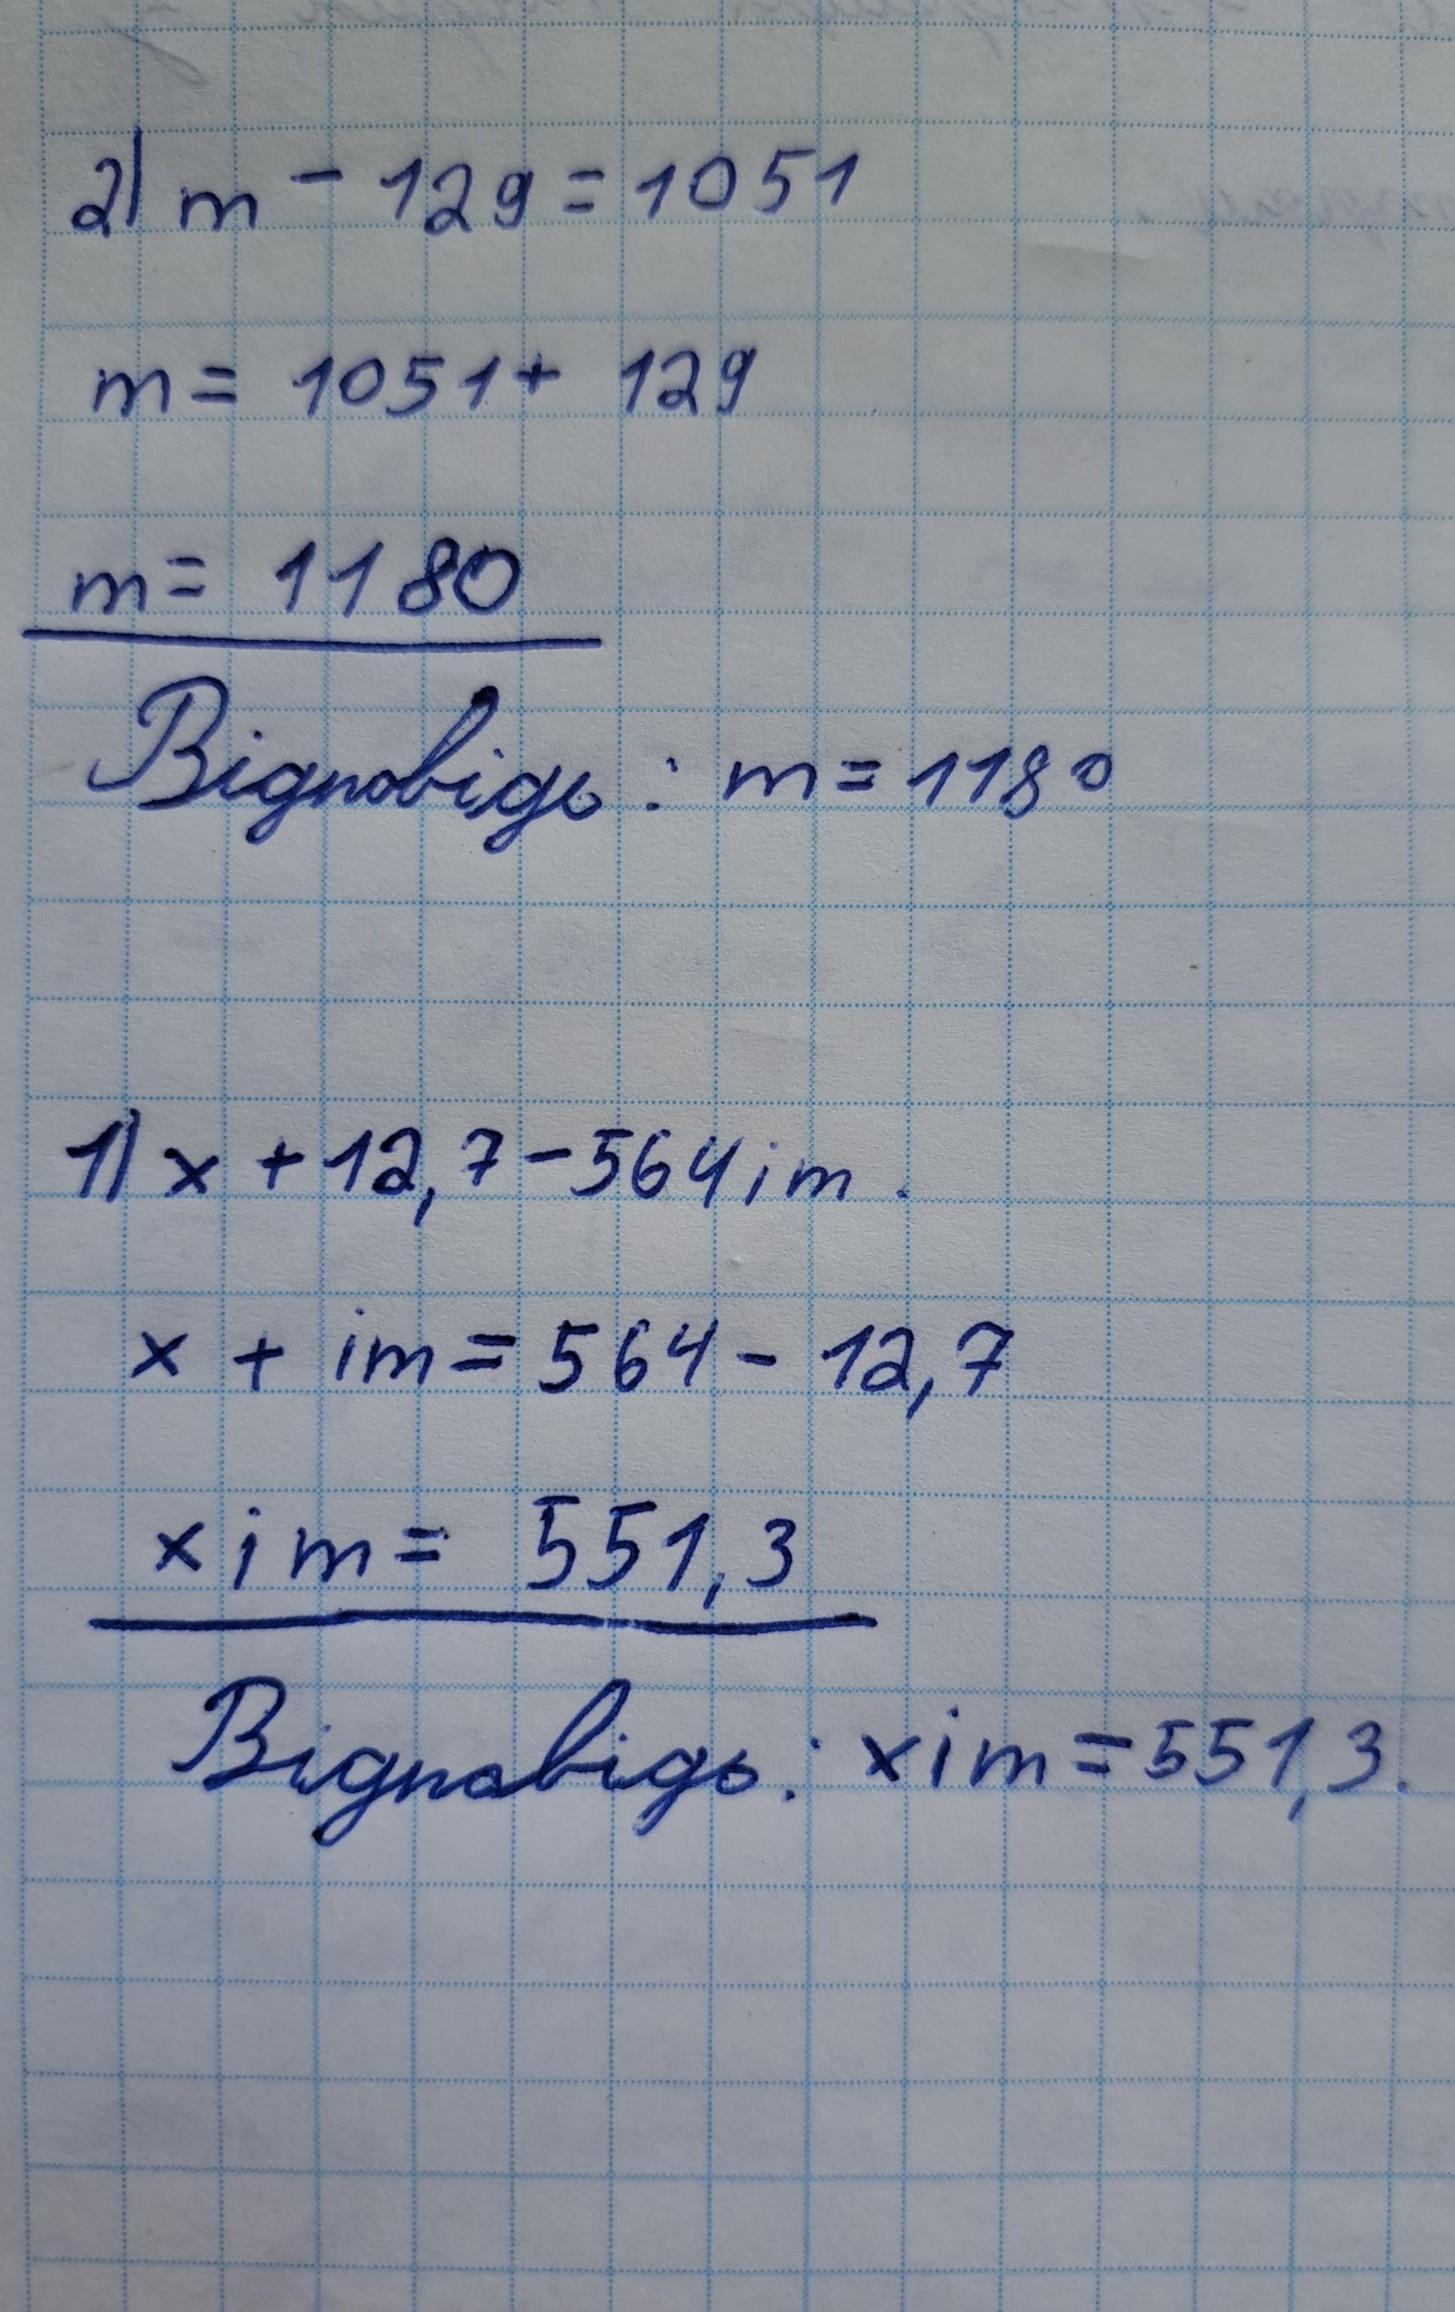 2) m - 129 = 1051
m = 1051 + 129
m = 1180
Відповідь: m = 1180
1) x + 12,7 - 564 im.
x + im = 564 - 12,7
x im = 551,3
Відповідь: x im = 551,3.